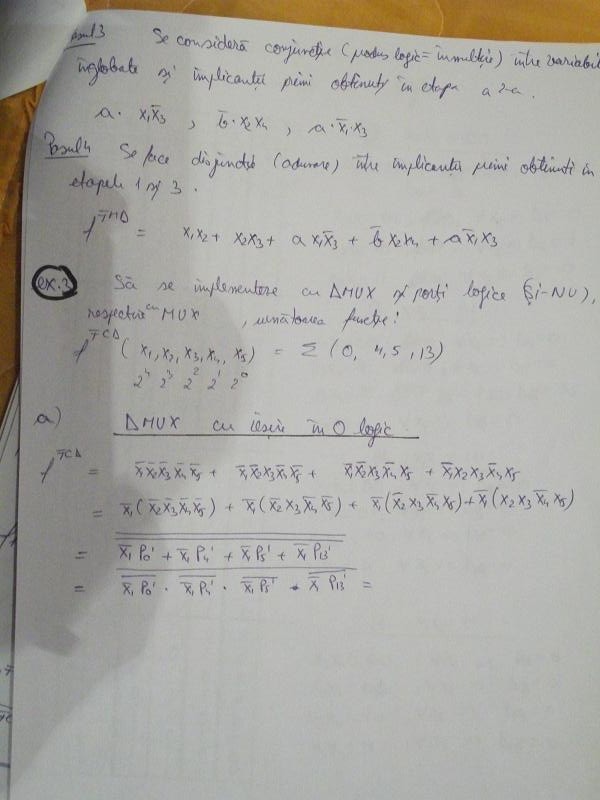 Pasul 3 Se consideră conjuncție (produs logic = înmulțire) între variabil
înglobate și implicanții primi obținuți în etapa a 2-a.
a · x₁x̄₃ , b̄ · x₂x₄ , a · x̄₁ · x₃
Pasul 4 Se face disjuncție (adunare) între implicanții primi obținuți în
etapele 1 și 3.
f^FMD = x₁x₂ + x₂x₃ + a x₁x̄₃ + b̄ x₂x₄ + a x̄₁x₃
ex. 2 Să se implementeze cu DMUX și porți logice (ȘI-NU),
respectiv cu MUX , următoarea funcție:
f^FCD (x₁, x₂, x₃, x₄, x₅) = Σ (0, 4, 5, 13)
2⁴ 2³ 2² 2¹ 2⁰
a) DMUX cu ieșire în 0 logic
f^FCD = x̄₁x̄₂x̄₃x̄₄x̄₅ + x̄₁x̄₂x₃x̄₄x̄₅ + x̄₁x̄₂x₃x̄₄x₅ + x̄₁x₂x₃x̄₄x₅
= x̄₁(x̄₂x̄₃x̄₄x̄₅) + x̄₁(x̄₂x₃x̄₄x̄₅) + x̄₁(x̄₂x₃x̄₄x₅) + x̄₁(x₂x₃x̄₄x₅)
= x̄₁P₀' + x̄₁P₄' + x̄₁P₅' + x̄₁P₁₃'
= x̄₁P₀' · x̄₁P₄' · x̄₁P₅' · x̄₁P₁₃' =